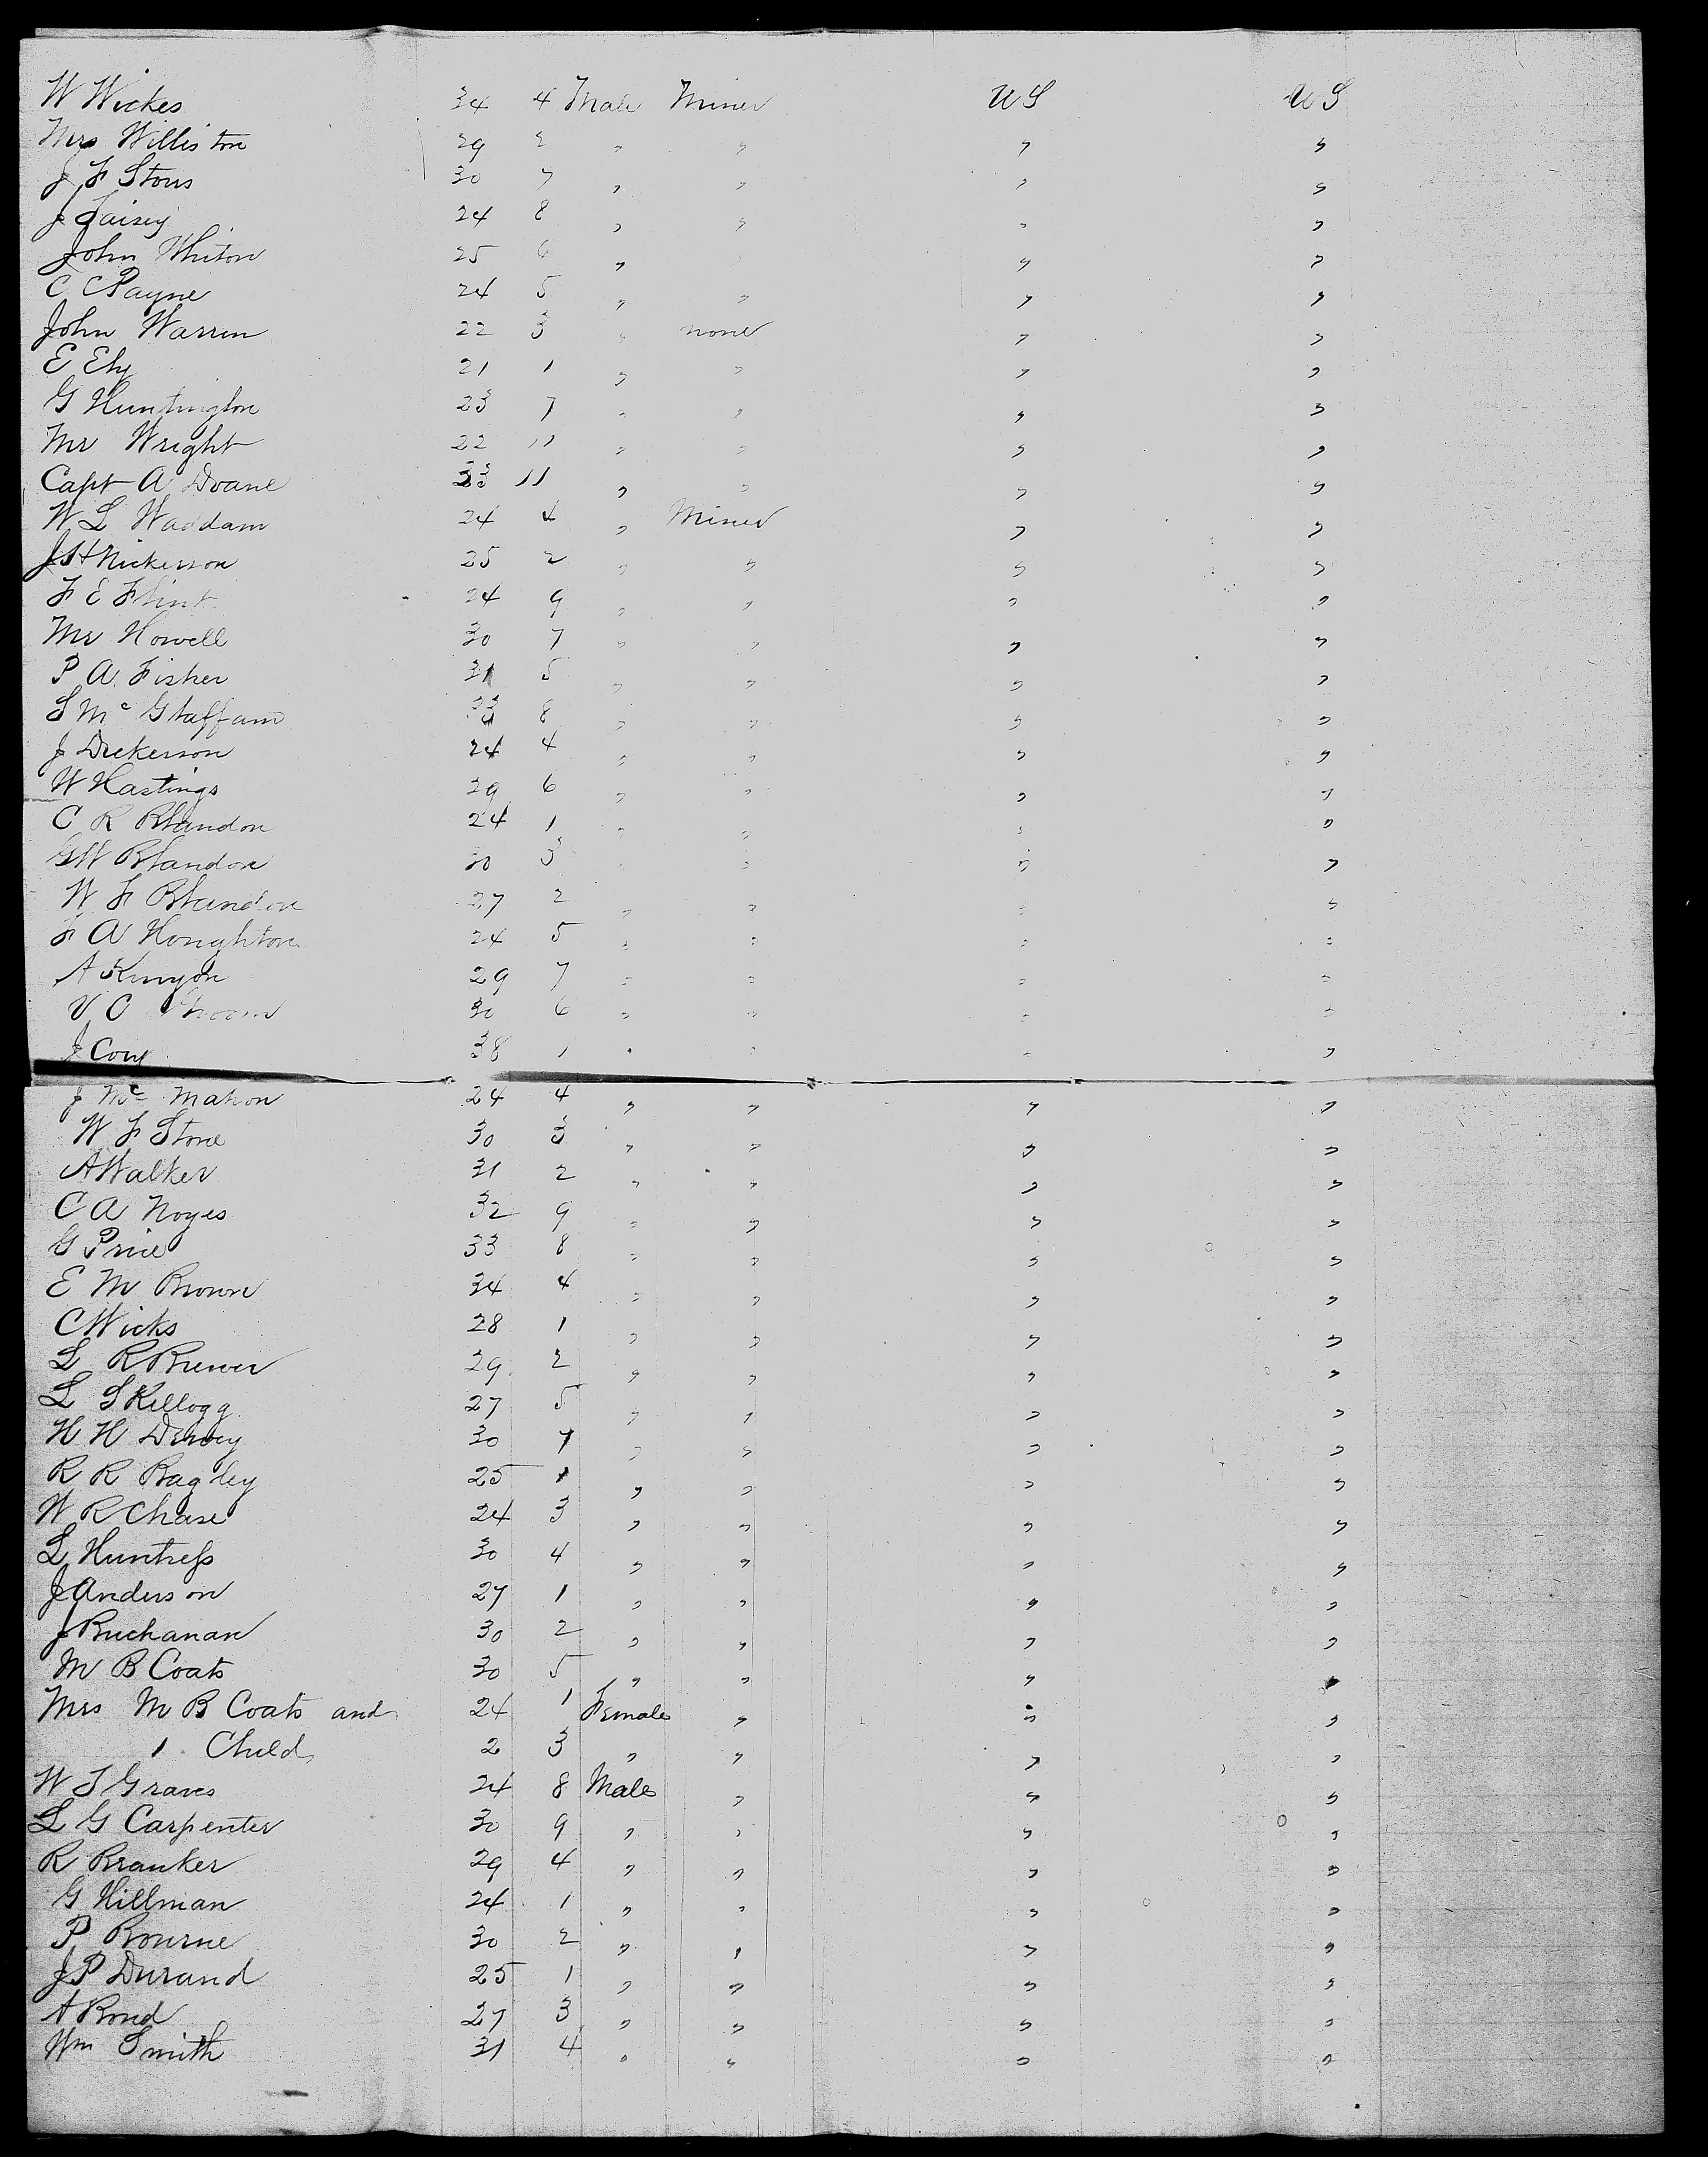 W Wickes 34 4 Male Miner US US
Mrs Williston 29 2 " " " "
J F Stons 30 7 " " " "
J Faisey 24 8 " " " "
John Whiton 25 6 " " "
C C Payne 24 5 " " " "
John Warren 22 3 " none " "
E Ely 21 1 " " " "
G Huntington 23 7 " " " "
Mr Wright 22 11 " " " "
Capt A Doane 23 11 " " " "
W L Waddam 24 4 " Miner " "
J H Nickerson 25 2 " " " "
F E Flint 24 9 " " " "
Mr Howell 30 7 " " " "
P A Fisher 31 5 " " " "
S Mc Glaffam 33 8 " " " "
J Dickerson 24 4 " " " "
W Hastings 29 6 " " " "
C R Blandon 24 1 " " " "
GW Blandon 30 3 " " " "
W F Blandon 27 2 " " " "
F A Houghton 24 5 " " " "
A Kinyon 29 7 " " " "
V O 30 6 " " " "
J Cory 38 1 " " " "
J Mc Mahon 24 4 " " " "
W F Stone 30 3 " " " "
A Walker 31 2 " " " "
C A Noyes 32 9 " " " "
G Price 33 8 " " " "
E M Brown 34 4 " " " "
C Wicks 28 1 " " " "
L R Brewer 29 2 " " " "
L S Kellogg 27 5 " " " "
H H Dewey 30 7 " " " "
R R Bagley 25 1 " " " "
W R Chase 24 3 " " " "
L Huntress 30 4 " " " "
J Anderson 27 1 " " " "
J Buchanan 30 2 " " " "
M B Coats 30 5 " " " "
Mrs M B Coats and 24 1 Female " " "
1 Child 2 3 " " " "
W S Graves 24 8 Male " " "
L G Carpenter 30 9 " " " "
R Branker 29 4 " " " "
G Hillman 24 1 " " " "
P Bourne 30 2 " " " "
J P Durand 25 1 " " " "
A Bond 27 3 " " " "
Wm Smith 31 4 " " " "